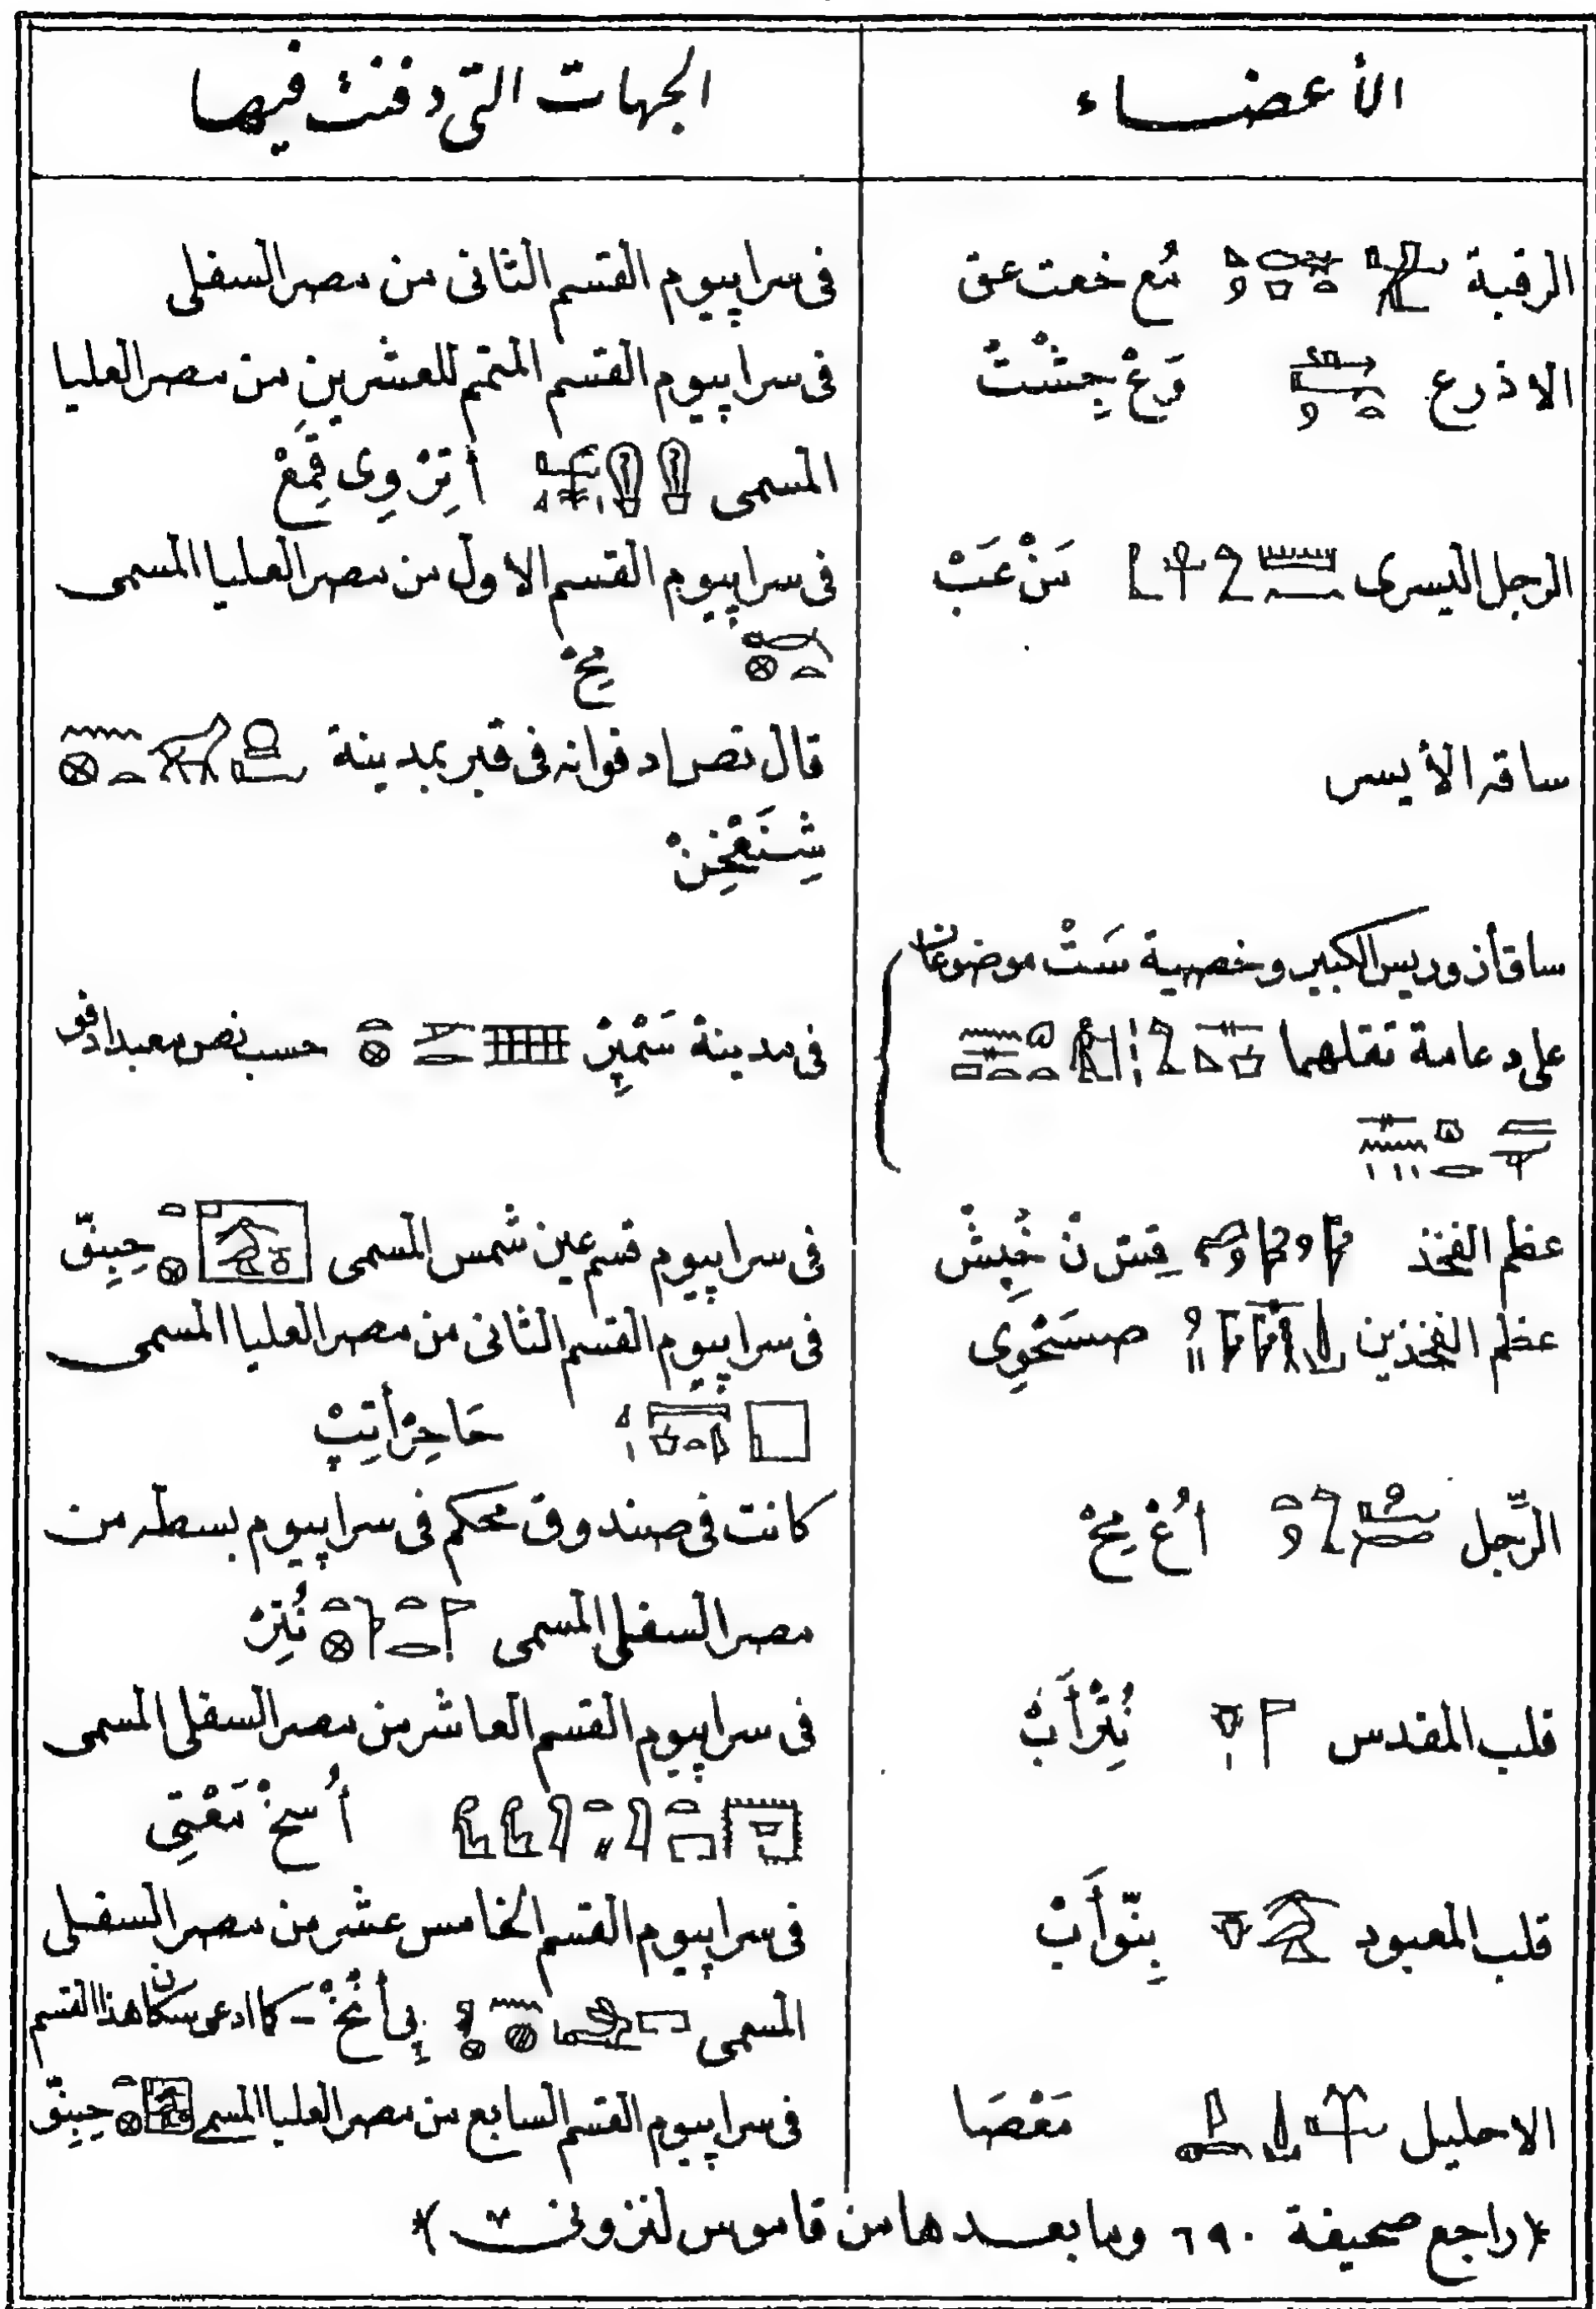 الأعضاء
الجهات التى دفنت فيها
الرقبة مع خعت عق
فى سراپيوم القسم الثانى من مصر السفلى
الاذرع وَعْ حِشْتْ
فى سراپيوم القسم المتمم للعشرين من مصر العليا
المسمى أتِرْ وِى قِمَعْ
الرجل اليسرى مَنْ عَبْ
فى سراپيوم القسم الاول من مصر العليا المسمى
ساقه الأيسر
قال نص ادفو انه فى قبر بمدينة
شِنَعْخِنْ
ساق أزوريس الكبير وخصية سَتْ موضوعان
على دعامة تقلهما
فى مدينة سَمْپِرْ حسب نص معبد ادفو
عظم الفخذ قِسْ نْ خُپِشْ
فى سراپيوم قسم عين شمس المسمى حِبِنّ
عظم الفخذين
فى سراپيوم القسم الثانى من مصر العليا المسمى
حَاحِرْ أتِپْ
الرِّجل أُعْ مِحْ
كانت فى صندوق محكم فى سراپيوم بسطه من
مصر السفلى المسمى نُتِرْ
قلب المقدس نُتِرْ أَبْ
فى سراپيوم القسم العاشر من مصر السفلى المسمى
أُسخْ مَعْتِى
قلب المعبود بِنّو أَبْ
فى سراپيوم القسم الخامس عشر من مصر السفلى
المسمى پى أُنُخْ - كما ادعى سكان هذا القسم
الاحليل مَعْصَا
فى سراپيوم القسم السابع من مصر العليا المسمى حِبِنّ
(راجع صحيفة ٦٩٠ وما بعدها من قاموس لنزونى)